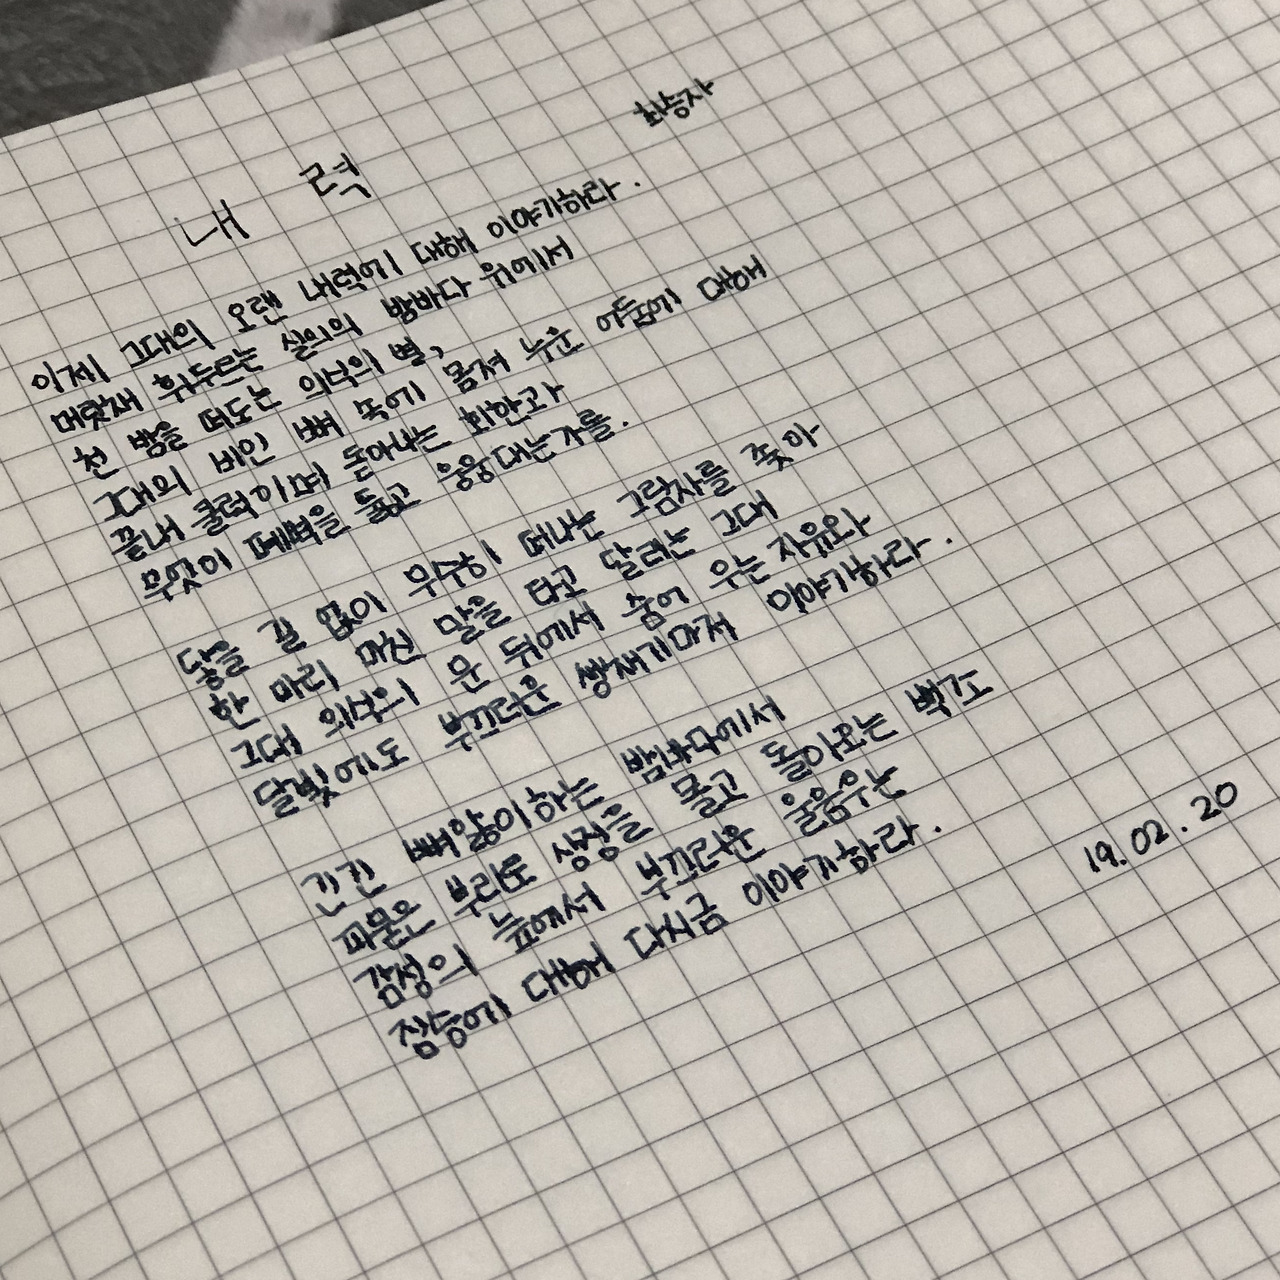 최승자
내 력
이제 그대의 오랜 내력에 대해 이야기하라.
머릿채 휘두르는 실의의 밤바다 위에서
천 밤을 떠도는 의식의 별,
그대의 비인 뼈 속에 몸져 누운 어둠에 대해
끝내 쿨럭이며 돋아나는 회한과
무엇이 폐벽을 뚫고 웅웅대는가를.
닿을 길 없이 무수히 떠나는 그림자를 쫓아
한 마리 마신 말을 타고 달리는 그대
그대 의식의 문 뒤에서 숨어 우는 자유와
달빛에도 부끄러운 생채기마저 이야기하라.
긴긴 뼈앓이하는 밤바다에서
파묻은 부리로 상장을 물고 돌아오는 백조
감성의 늪에서 부끄러운 울음우는
짐승에 대해 다시금 이야기하라.
19.02.20